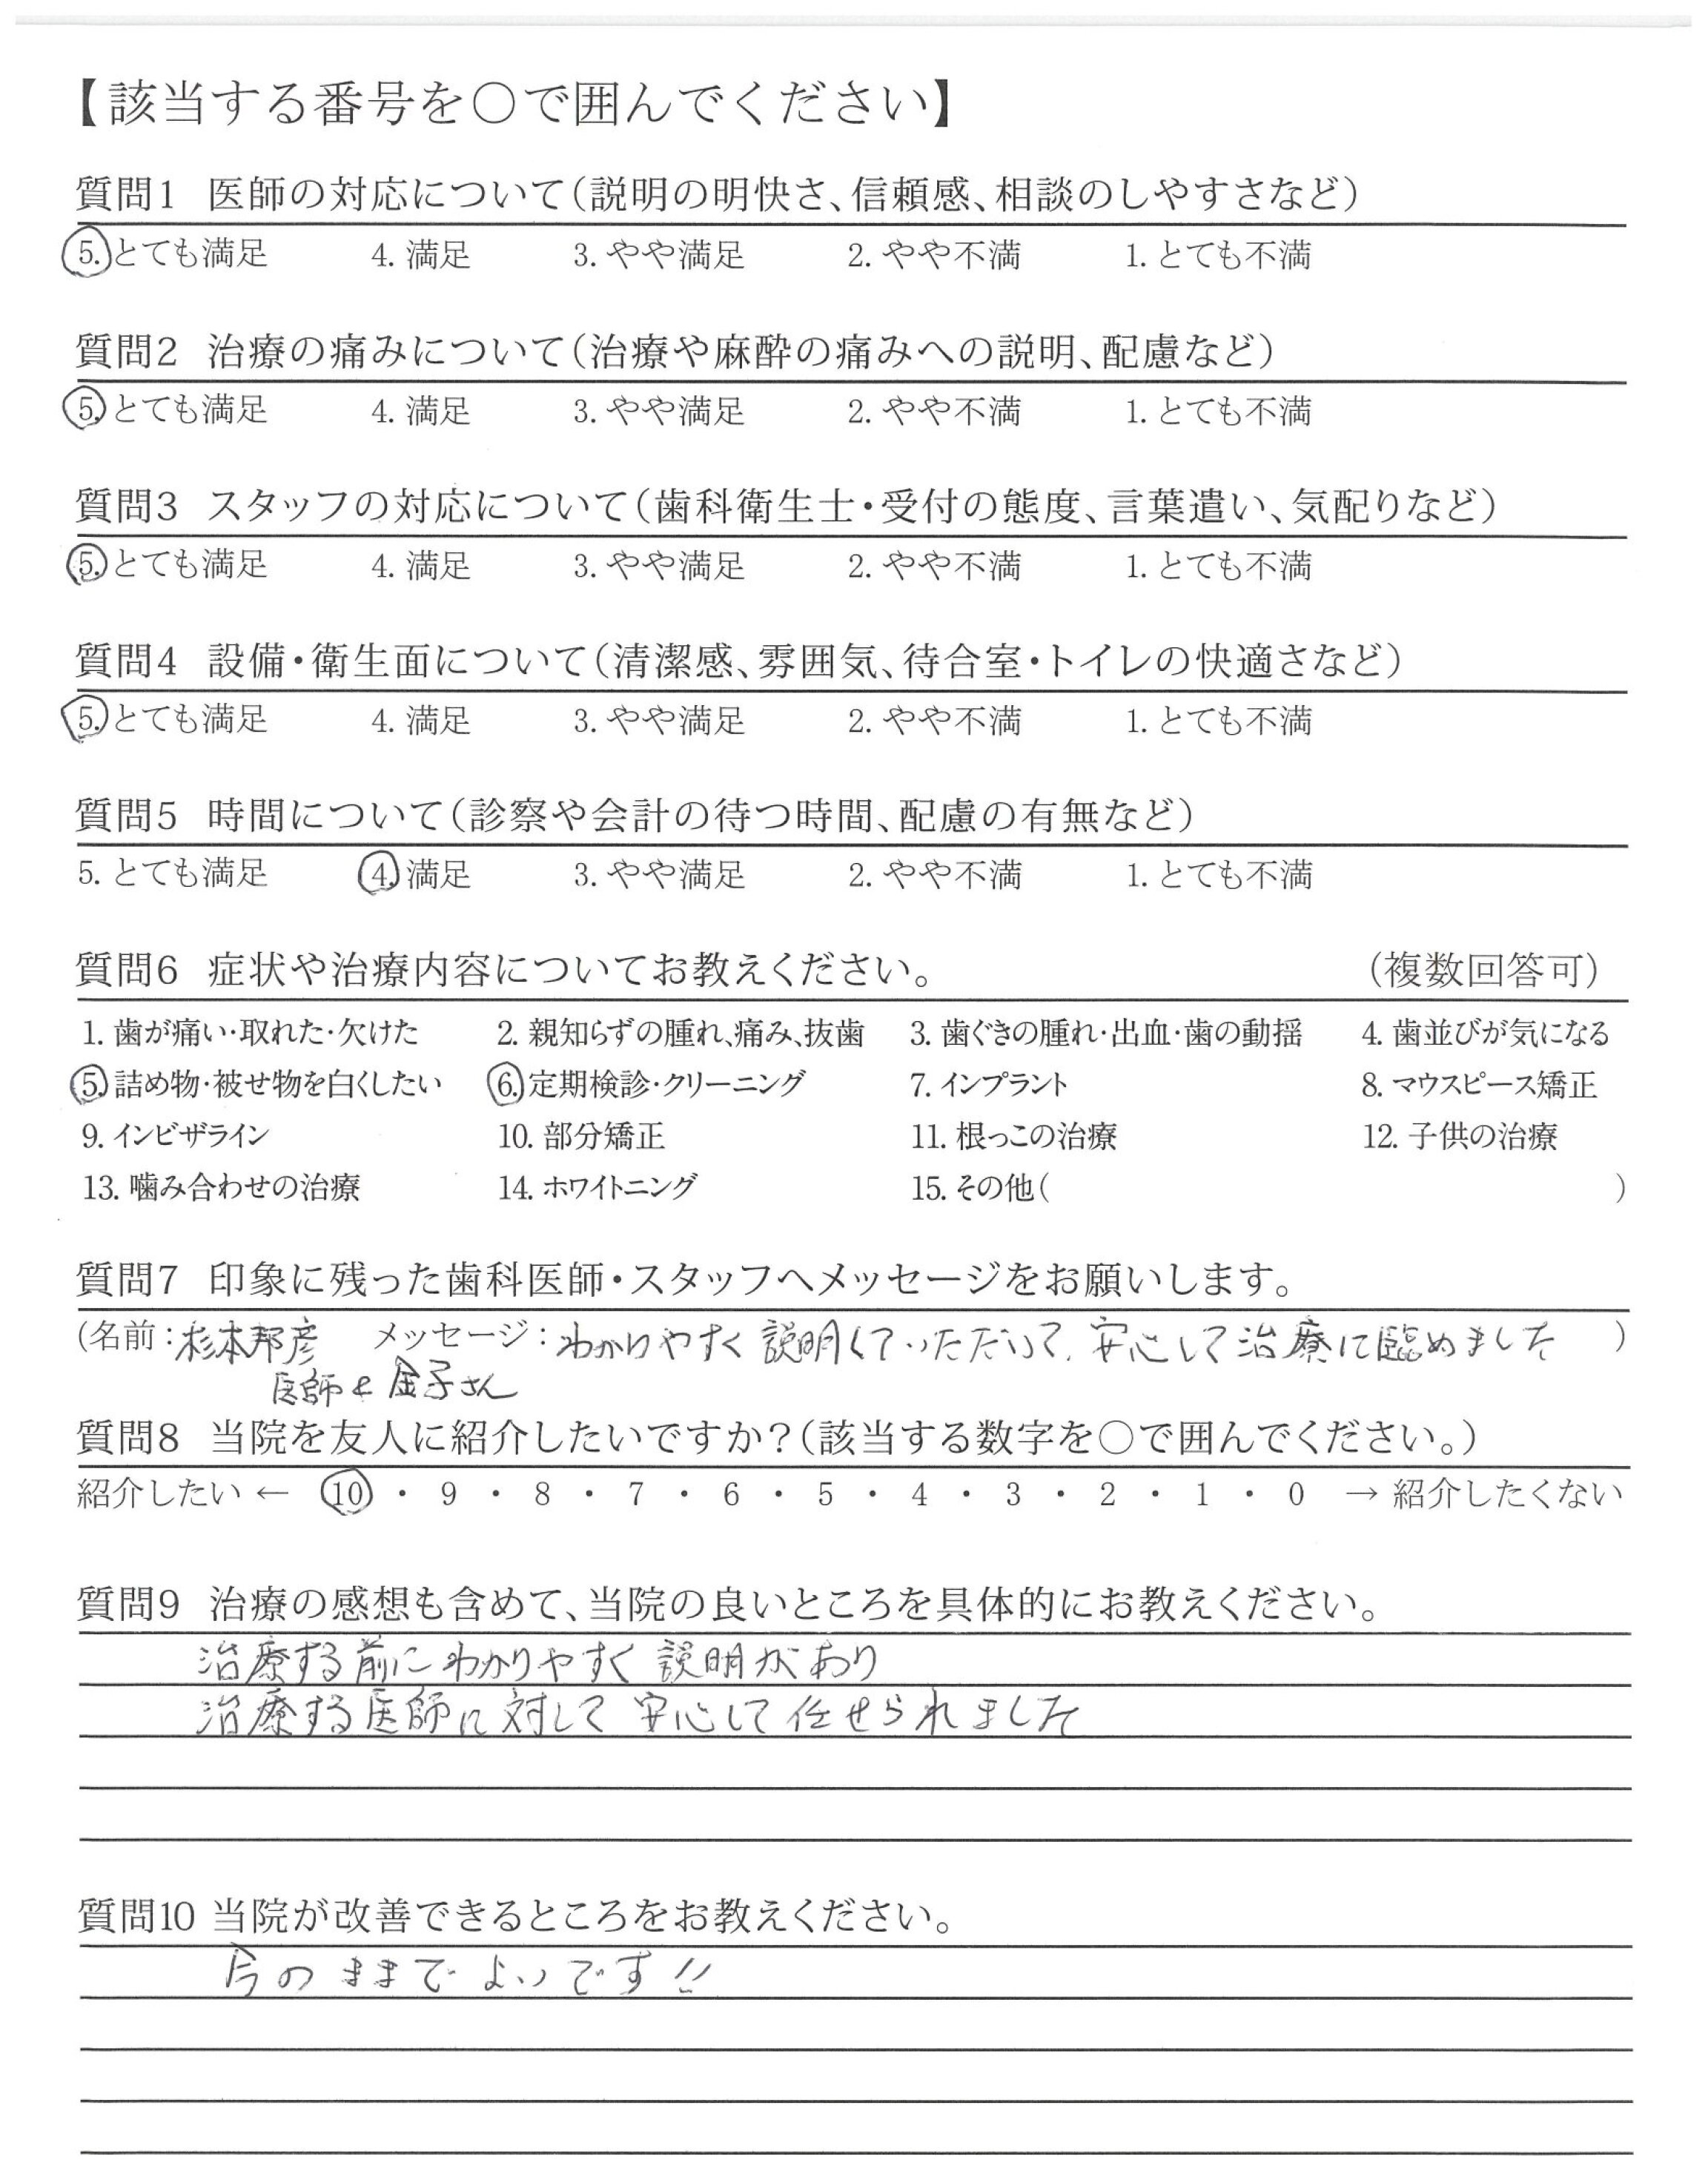 【該当する番号を〇で囲んでください】
質問1 医師の対応について(説明の明快さ、信頼感、相談のしやすさなど)
5. とても満足 4. 満足 3. やや満足 2. やや不満 1. とても不満
質問2 治療の痛みについて(治療や麻酔の痛みへの説明、配慮など)
5. とても満足 4. 満足 3. やや満足 2. やや不満 1. とても不満
質問3 スタッフの対応について(歯科衛生士・受付の態度、言葉遣い、気配りなど)
5. とても満足 4. 満足 3. やや満足 2. やや不満 1. とても不満
質問4 設備・衛生面について(清潔感、雰囲気、待合室・トイレの快適さなど)
5. とても満足 4. 満足 3. やや満足 2. やや不満 1. とても不満
質問5 時間について(診察や会計の待つ時間、配慮の有無など)
5. とても満足 4. 満足 3. やや満足 2. やや不満 1. とても不満
質問6 症状や治療内容についてお教えください。 (複数回答可)
1. 歯が痛い・取れた・欠けた 2. 親知らずの腫れ、痛み、抜歯 3. 歯ぐきの腫れ・出血・歯の動揺 4. 歯並びが気になる
5. 詰め物・被せ物を白くしたい 6. 定期検診・クリーニング 7. インプラント 8. マウスピース矯正
9. インビザライン 10. 部分矯正 11. 根っこの治療 12. 子供の治療
13. 噛み合わせの治療 14. ホワイトニング 15. その他( )
質問7 印象に残った歯科医師・スタッフへメッセージをお願いします。
(名前:杉本邦彦 メッセージ:わかりやすく説明していただいて、安心して治療に臨めました )
医師と金子さん
質問8 当院を友人に紹介したいですか?(該当する数字を〇で囲んでください。)
紹介したい ← 10 ・ 9 ・ 8 ・ 7 ・ 6 ・ 5 ・ 4 ・ 3 ・ 2 ・ 1 ・ 0 → 紹介したくない
質問9 治療の感想も含めて、当院の良いところを具体的にお教えください。
治療する前にわかりやすく説明があり
治療する医師に対して安心して任せられました
質問10 当院が改善できるところをお教えください。
今のままでよいです!!